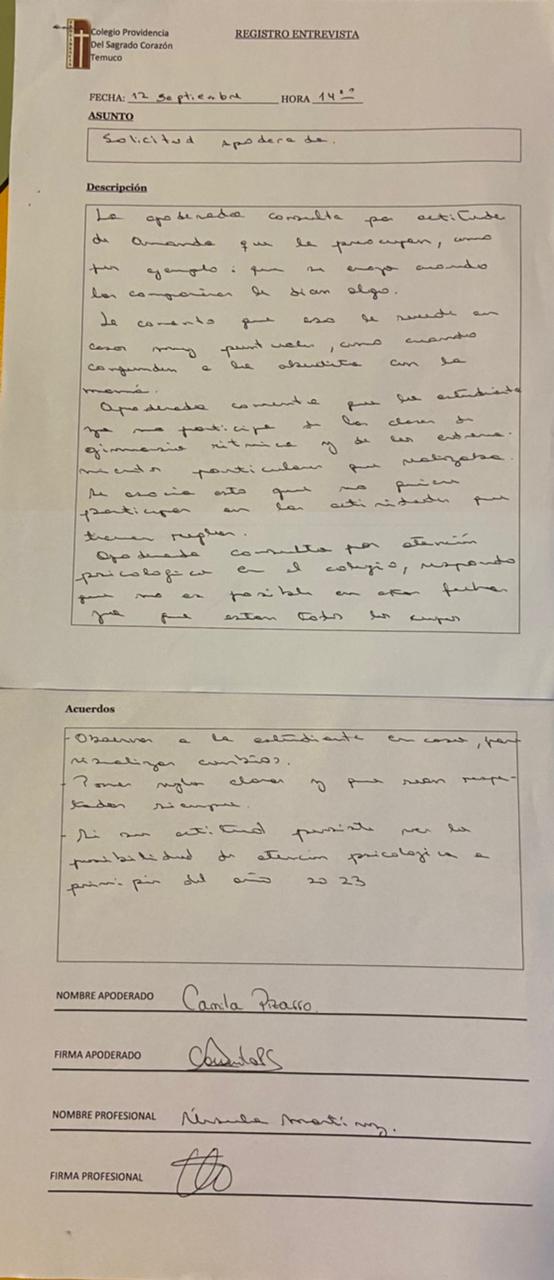 Colegio Providencia
Del Sagrado Corazón
Temuco
REGISTRO ENTREVISTA
FECHA: 12 Septiembre HORA 14:00
ASUNTO
Solicitud Apoderada.
Descripción
La apoderada consulta por actitudes
de Amanda que le preocupan, como
por ejemplo: que se enoja cuando
los compañeros le dicen algo.
Le comento que eso le sucede en
casos muy puntuales, como cuando
confunden a la abuelita con la
mamá.
Apoderada comenta que la estudiante
ya no participa de las clases de
gimnasia rítmica y de los entrena-
mientos particulares que realizaba.
Se asocia esto que no quiere
participar en las actividades que
tienen reglas.
Apoderada consulta por atención
psicológica en el colegio, respondo
que no es posible en estas fechas
ya que están todos los cupos
Acuerdos
- Observar a la estudiante en casa, para
visualizar cambios.
- Poner reglas claras y que sean respe-
tadas siempre.
- Si su actitud persiste ver la
posibilidad de atención psicológica a
principio del año 2023
NOMBRE APODERADO Camila Pizarro
FIRMA APODERADO
NOMBRE PROFESIONAL Úrsula Martínez.
FIRMA PROFESIONAL